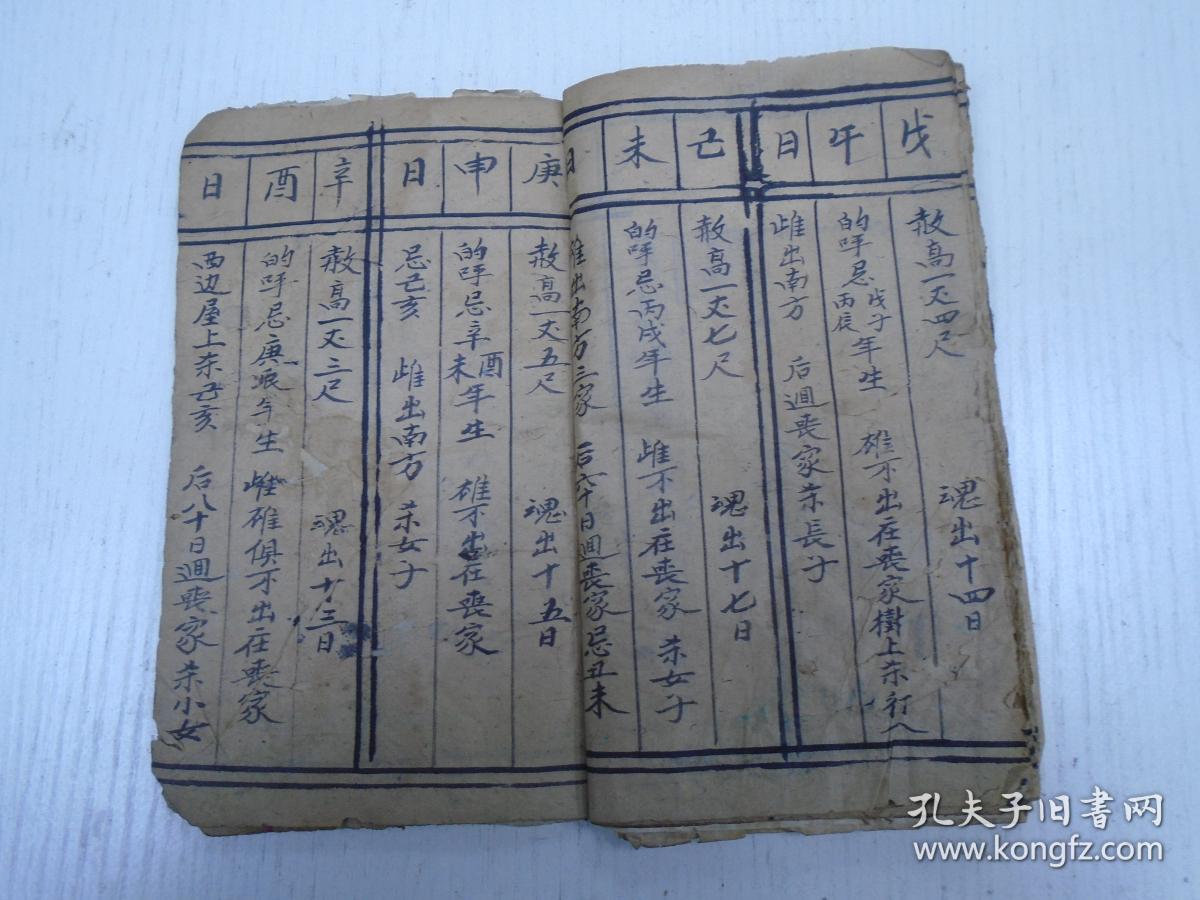 戊午日
㪚高一丈四尺 魂出十四日
的呼忌戊子丙辰年生 雄不出在喪家樹上杀行人
雌出南方 后週喪家杀長子
己未日
㪚高一丈七尺 魂出十七日
的呼忌丙戌年生 雌不出在喪家 杀女子
雄出南方三家 后六十日週喪家忌丑未
庚申日
㪚高一丈五尺 魂出十五日
的呼忌辛未酉年生 雄不出在喪家
忌己亥 雌出南方 杀女子
辛酉日
㪚高一丈三尺 魂出十三日
的呼忌庚辰年生 雌雄俱不出在喪家
西边屋上杀己亥 后八十日週喪家杀小女
孔夫子旧书网
www.kongfz.com